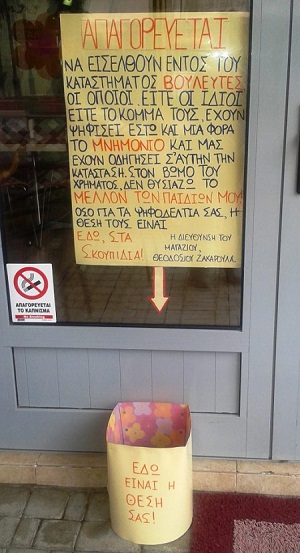 ΑΠΑΓΟΡΕΥΕΤΑΙ
ΝΑ ΕΙΣΕΛΘΟΥΝ ΕΝΤΟΣ ΤΟΥ
ΚΑΤΑΣΤΗΜΑΤΟΣ ΒΟΥΛΕΥΤΕΣ
ΟΙ ΟΠΟΙΟΙ, ΕΙΤΕ ΟΙ ΙΔΙΟΙ
ΕΙΤΕ ΤΟ ΚΟΜΜΑ ΤΟΥΣ, ΕΧΟΥΝ
ΨΗΦΙΣΕΙ ΕΣΤΩ ΚΑΙ ΜΙΑ ΦΟΡΑ
ΤΟ ΜΝΗΜΟΝΙΟ ΚΑΙ ΜΑΣ
ΕΧΟΥΝ ΟΔΗΓΗΣΕΙ Σ'ΑΥΤΗΝ ΤΗΝ
ΚΑΤΑΣΤΑΣΗ. ΣΤΟΝ ΒΩΜΟ ΤΟΥ
ΧΡΗΜΑΤΟΣ, ΔΕΝ ΘΥΣΙΑΖΩ ΤΟ
ΜΕΛΛΟΝ ΤΩΝ ΠΑΙΔΙΩΝ ΜΟΥ!
ΟΣΟ ΓΙΑ ΤΑ ΨΗΦΟΔΕΛΤΙΑ ΣΑΣ, Η
ΘΕΣΗ ΤΟΥΣ ΕΙΝΑΙ
ΕΔΩ, ΣΤΑ
ΣΚΟΥΠΙΔΙΑ!
Η ΔΙΕΥΘΥΝΣΗ ΤΟΥ
ΜΑΓΑΖΙΟΥ,
ΘΕΟΔΟΣΙΟΥ ΖΑΧΑΡΟΥΛΑ.
ΑΠΑΓΟΡΕΥΕΤΑΙ
ΤΟ ΚΑΠΝΙΣΜΑ
No Smoking
ΕΔΩ
ΕΙΝΑΙ Η
ΘΕΣΗ
ΣΑΣ!